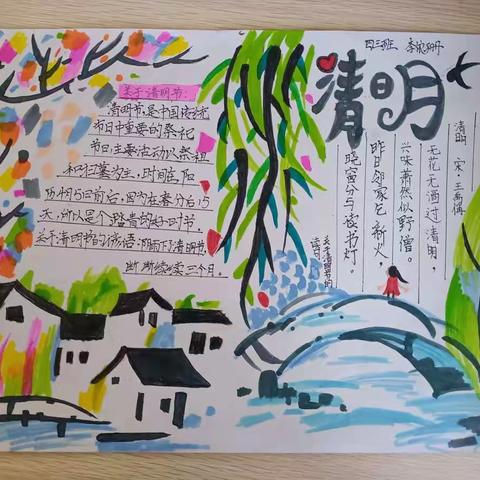 四三班
清明
关于清明节:
清明节是中国传统
节日中重要的祭祀
节日,主要活动以祭祖
和扫墓为主,时间在阳
历4月5日前后,因为在春分后15
天,所以是个踏青的好时节。
关于清明节的俗语:阴雨下了清明节,
断断续续三个月。
关于清明节的
诗句:
清明 宋 王禹偁
无花无酒过清明,
兴味萧然似野僧。
昨日邻家乞新火,
晓窗分与读书灯。